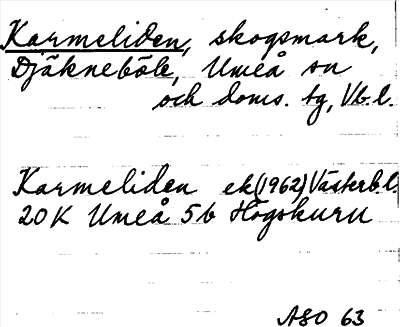 Karmeliden, skogsmark,
Djäkneböle, Umeå sn
och doms. tg, Vb.l.
Karmeliden ek(1962) Västerb.l.
20K Umeå 5b Högskuru
ASO 63